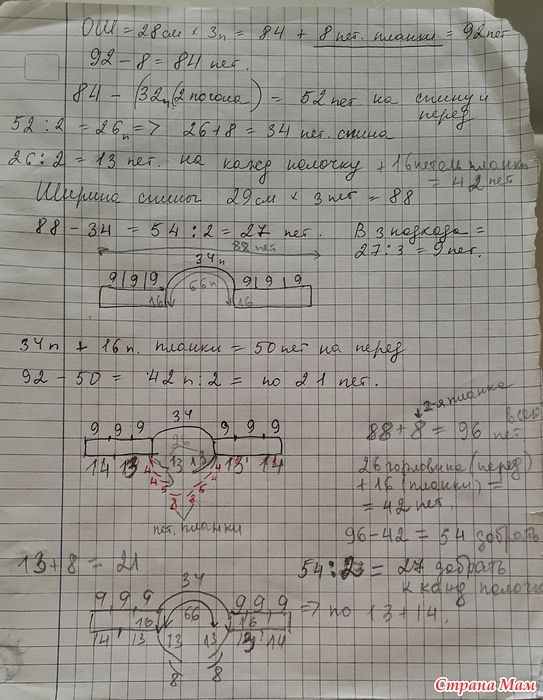 ОШ = 28см × 3п = 84 + 8 пет. планки = 92 пет
92 - 8 = 84 пет.
84 - (32п(2 погона) = 52 пет на спину и перед
52 : 2 = 26п => 26+8 = 34 пет. спина
26 : 2 = 13 пет. на кажд полочку + 16 петель планки = 42 пет
Ширина спины 29см × 3 пет = 88
88 - 34 = 54 : 2 = 27 пет. В 3 подхода = 27 : 3 = 9 пет.
88 пет
34п
9 9 9 66п 9 9 9
16 16
34п + 16п. планки = 50 пет на перед
92 - 50 = 42п : 2 = по 21 пет.
34
9 9 9 26 9 9 9
14 13 13 13 13 14
4 4
4 4
5 5
8 8
пет. планки
2-я планка
88 + 8 = 96 всего пет
26 горловина (перед)
+ 16 (планки) =
= 42 пет
96 - 42 = 54 добрать
54 : 2 = 27 добрать к кажд полочке
=> по 13 + 14.
13 + 8 = 21
34
9 9 9 66 9 9 9
16 16
14 13 13 13 13 14
8 8
Страна Мам